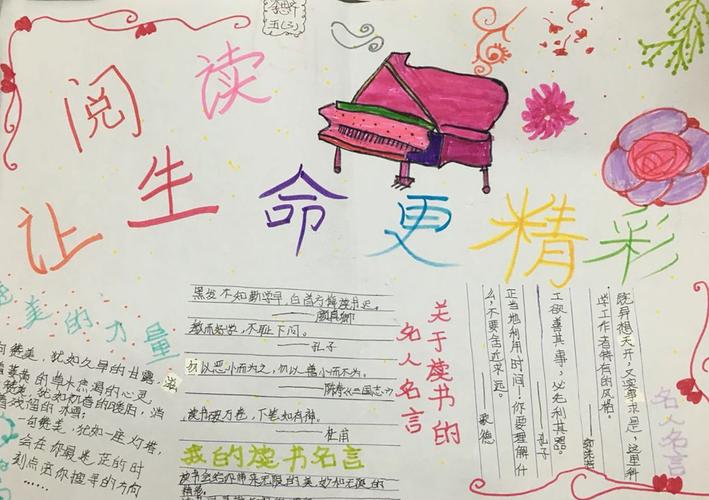 五(3)
阅读
让生命更精彩
美的力量
犹如久旱的甘露,
的草木
心灵。
犹如初春的暖阳,消
一句赞美,犹如一座灯塔,
会在你最迷茫的时
刻点亮你搜寻的方向
……
黑发不知勤学早,白首方悔读书迟。
——颜真卿
敏而好学,不耻下问。
——孔子
勿以恶小而为之,勿以善小而不为。
——陈寿《三国志》
读书破万卷,下笔如有神。
——杜甫
我的读书名言
读书会给你带来无限的美妙和无限的
关于读书的
名人名言
正当地利用时间!你要理解什
么,不要舍近求远。
——歌德
工欲善其事,必先利其器。
——孔子
既异想天开,又实事求是,这是科
学工作者特有的风格。
——郭沫若
名人名言